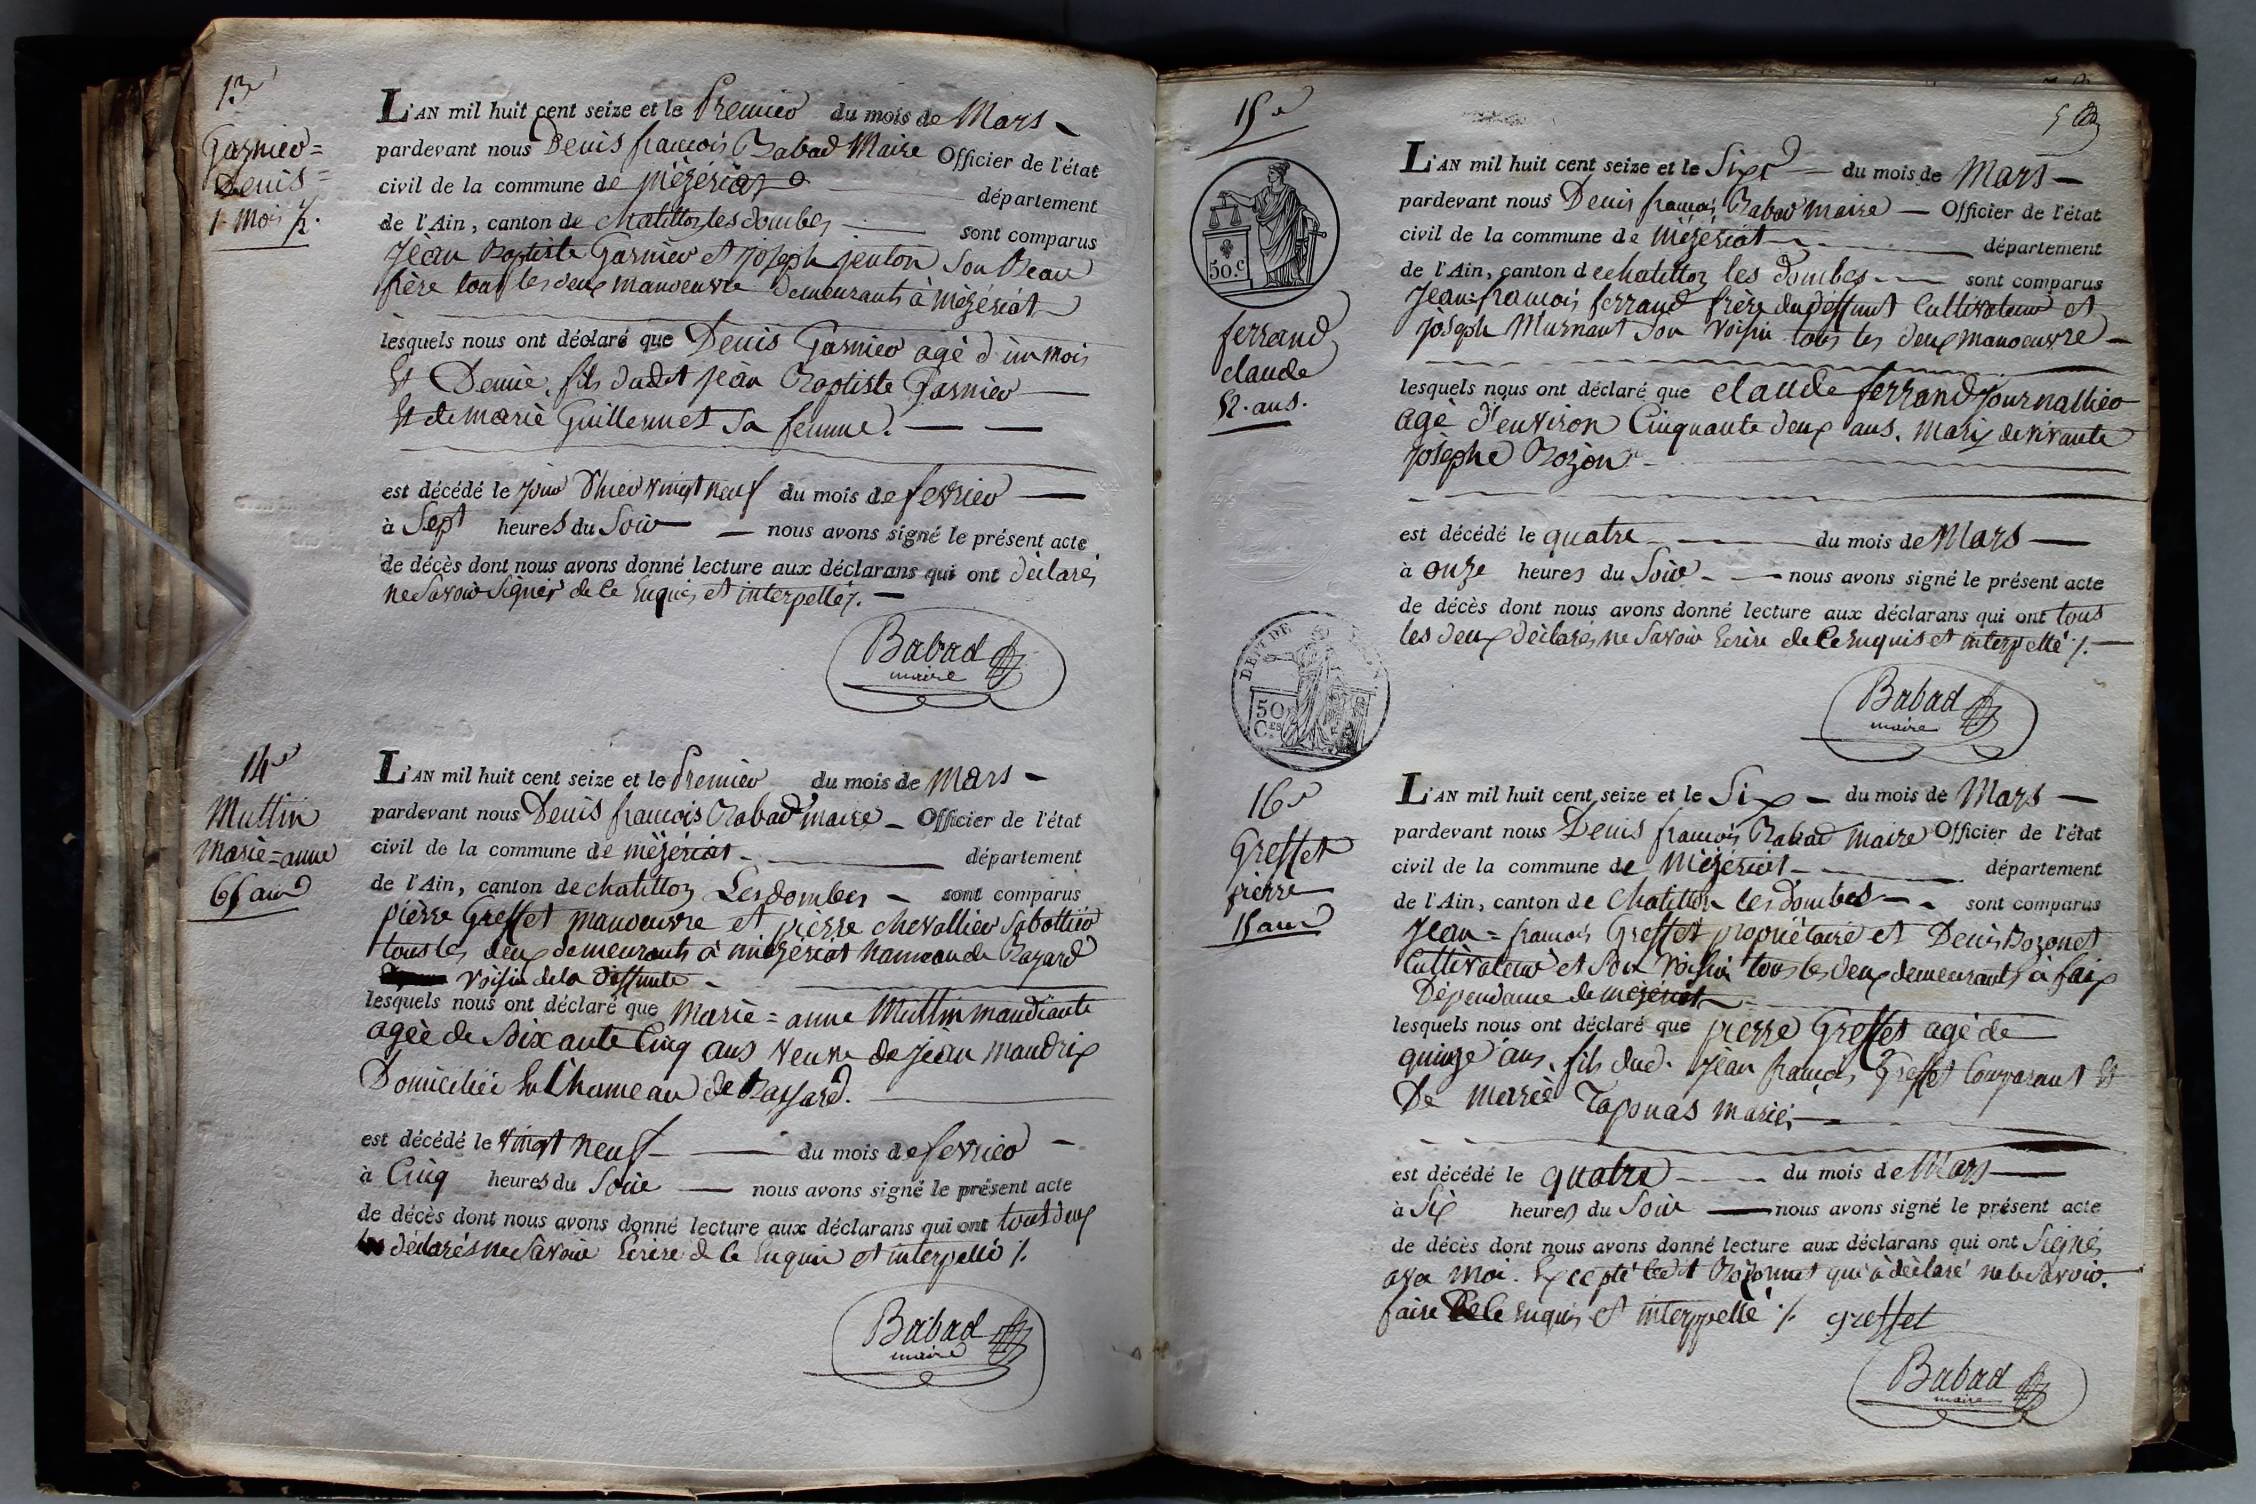 13e
Garnier=
Denis=
1 Mois ½.
L'AN mil huit cent seize et le Premier du mois de Mars
pardevant nous Denis françois Babad Maire Officier de l'état
civil de la commune de mézériat département
de l'Ain, canton de chatillon les dombes sont comparus
Jèan Baptiste Garnier et joseph jenton Son Beau
frère tous les deux manoeuvre demeurants à mézériat
lesquels nous ont déclaré que Denis Garnier agé d'un mois
Et Demie, fils dudit jèan Baptiste Garnier
Et de marie Guillermet Sa femme.
est décédé le jour d'hier vingt neuf du mois de fevrier
à Sept heures du Soir nous avons signé le présent acte
de décès dont nous avons donné lecture aux déclarans qui ont déclarés
ne Savoir Signer de ce Enquis et interpellés.
Babad
maire
14e
Muttin
Marie=anne
65 ans
L'AN mil huit cent seize et le Premier du mois de Mars
pardevant nous Denis françois Babad maire Officier de l'état
civil de la commune de mézériat département
de l'Ain, canton de chatillon Les dombes sont comparus
pièrre Greffet manoeuvre et pièrre chevallier Sabottier
tous les deux demeurants à mézériat hameau de
voisin de la deffunte
lesquels nous ont déclaré que Marie=anne Muttin mandiante
agèe de Soixante Cinq ans veuve de jèan
Domiciliée En L'hameau de
est décédé le vingt neuf du mois de fevrier
à Cinq heures du Soir nous avons signé le présent acte
de décès dont nous avons donné lecture aux déclarans qui ont tous deux
déclarés ne Savoir Ecrire de Ce Enquis et interpellé
Babad
maire
15e
50.c
ferrand
claude
52. ans.
L'AN mil huit cent seize et le Six du mois de Mars
pardevant nous Denis françois Babad maire Officier de l'état
civil de la commune de mézériat département
de l'Ain, canton de chatillon les dombes sont comparus
Jean=françois ferrand frère du deffunt Cultivateur et
jòseph Murnant Son voisin tous les deux manoeuvre
lesquels nous ont déclaré que claude ferrand journallier
agé d'environ Cinquante deux ans. Marij de vivante
josephe Bozon
est décédé le quatre du mois de Mars
à onze heures du Soir nous avons signé le présent acte
de décès dont nous avons donné lecture aux déclarans qui ont tous
les deux déclarés ne Savoir Ecrire de Ce Enquis et interpellé
Babad
maire
50
Ces
16e
Greffet
pierre
15 ans
L'AN mil huit cent seize et le Six du mois de Mars
pardevant nous Denis françois Babad Maire Officier de l'état
civil de la commune de Mézériat département
de l'Ain, canton de Chatillon les dombes sont comparus
Jean=françois Greffet propriétaire et Denis Bozonet
Cultivateur et Son voisin tous les deux demeurants à
Dépendance de mézériat
lesquels nous ont déclaré que pierre Greffet agé de
quinze ans, fils dud. Jean françois Greffet Comparant Et
De Mariè Taponas mariés
est décédé le quatre du mois de Mars
à Six heures du Soir nous avons signé le présent acte
de décès dont nous avons donné lecture aux déclarans qui ont Signés
avec Moi. Excepté ledit Bozonnet qui à déclaré ne le Savoir
faire de Ce Enquis et interppellé greffet
Babad
maire